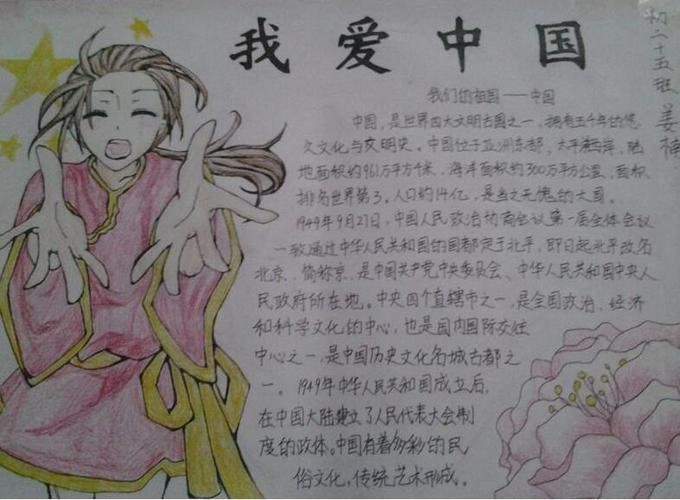 我爱中国
初二十五班 姜楠
我们的祖国——中国
中国，是世界四大文明古国之一，拥有五千年的悠
久文化与文明史。中国位于亚洲东部，太平洋西岸，陆
地面积约961万平方千米，海洋面积约300万平方公里，面积
排名世界第3。人口约14亿，是当之无愧的大国。
1949年9月27日，中国人民政治协商会议第一届全体会议
一致通过中华人民共和国的国都定于北平，即日起北平改名
北京，简称京，是中国共产党中央委员会、中华人民共和国中央人
民政府所在地。中央四个直辖市之一，是全国政治、经济
和科学文化的中心，也是国内国际交往
中心之一，是中国历史文化名城古都之
一。1949年中华人民共和国成立后，
在中国大陆建立了人民代表大会制
度的政体。中国有着多彩的民
俗文化，传统艺术形成。